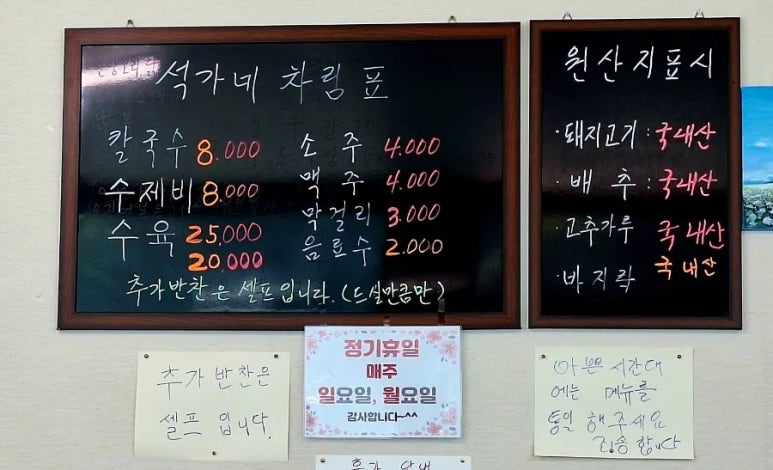 석가네 차림표
칼국수 8.000
수제비 8.000
수육 25,000
20.000
소주 4.000
맥주 4.000
막걸리 3.000
음료수 2.000
추가반찬은 셀프입니다. (드실만큼만)
원산지표시
·돼지고기 : 국내산
·배추 : 국내산
·고추가루 국내산
·바지락 국내산
정기휴일
매주
일요일, 월요일
감사합니다~^^
추가 반찬은
셀프 입니다.
아쁜 시간대
에는 메뉴를
통일 해주세요
죄송합니다